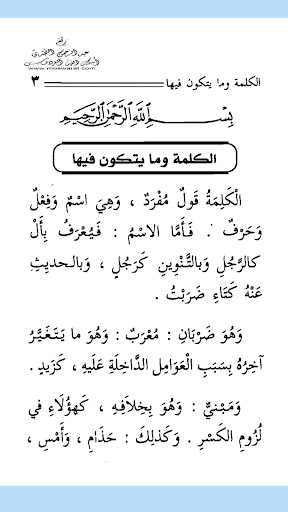 رفع
www.moswarat.com
الكلمة وما يتكون فيها
٣
بِسْمِ اللَّهِ الرَّحْمَٰنِ الرَّحِيمِ
الكلمة وما يتكون فيها
الْكَلِمَةُ قَولٌ مُفْرَدٌ ، وَهِيَ اسْمٌ وَفِعْلٌ
وَحَرْفٌ . فَأَمَّا الاسْمُ : فَيُعْرَفُ بِأَلْ
كالرَّجُلِ وَبالتَّنْوِينِ كَرَجُلٍ ، وَبالحديثِ
عَنْهُ كَتَاءِ ضَرَبْتُ .
وَهُوَ ضَرْبَانِ : مُعْرَبٌ : وَهُوَ ما يَتَغَيَّرُ
آخِرُهُ بِسَبَبِ الْعَوَامِلِ الدَّاخِلَةِ عَلَيهِ ، كَزَيدٍ .
وَمَبْنِيٌّ : وَهُوَ بِخِلَافِهِ ، كَهؤُلَاءِ في
لُزُومِ الكَسْرِ . وَكَذلِكَ : حَذَامِ ، وَأَمْسِ ،